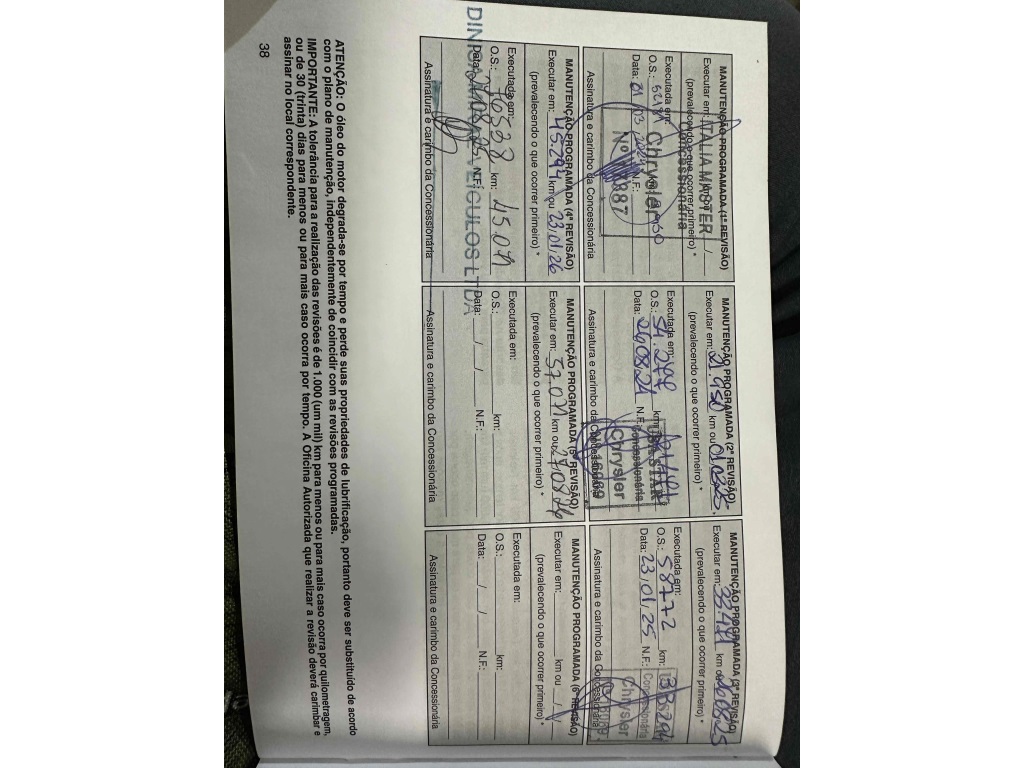 MANUTENÇÃO PROGRAMADA (1ª REVISÃO)
Executar em: ITALIA MASTER /
(prevalecendo o que ocorrer primeiro) *
Concessionária
Executada em:
O.S.: km:
Chrysler
Data: 01 03 2024 N.F.:
Nº 387
Assinatura e carimbo da Concessionária
MANUTENÇÃO PROGRAMADA (2ª REVISÃO)
Executar em: 21.950 km ou 01.03.25
(prevalecendo o que ocorrer primeiro) *
Executada em:
O.S.: 54.277 km:
STAR
Data: 26 08 24 N.F.:
Concessionária
Chrysler
Assinatura e carimbo da Concessionária
MANUTENÇÃO PROGRAMADA (3ª REVISÃO)
Executar em: 33.421 km ou 26.08.25
(prevalecendo o que ocorrer primeiro) *
Executada em:
O.S.: 58772 km: 33.294
Data: 23.01.25 N.F.:
Concessionária
Chrysler
Assinatura e carimbo da Concessionária
MANUTENÇÃO PROGRAMADA (4ª REVISÃO)
Executar em: 45.294 km ou 23.01.26
(prevalecendo o que ocorrer primeiro) *
Executada em:
O.S.: 76532 km: 45.071
Data: 27.08.25 N.F.:
VEICULOS LTDA
Assinatura e carimbo da Concessionária
MANUTENÇÃO PROGRAMADA (5ª REVISÃO)
Executar em: 57.071 km ou 27.08.26
(prevalecendo o que ocorrer primeiro) *
Executada em:
O.S.: km:
Data: / / N.F.:
Assinatura e carimbo da Concessionária
MANUTENÇÃO PROGRAMADA (6ª REVISÃO)
Executar em: km ou / /
(prevalecendo o que ocorrer primeiro) *
Executada em:
O.S.: km:
Data: / / N.F.:
Assinatura e carimbo da Concessionária
ATENÇÃO: O óleo do motor degrada-se por tempo e perde suas propriedades de lubrificação, portanto deve ser substituído de acordo
com o plano de manutenção, independentemente de coincidir com as revisões programadas.
IMPORTANTE: A tolerância para a realização das revisões é de 1.000 (um mil) km para menos ou para mais caso ocorra por quilometragem,
ou de 30 (trinta) dias para menos ou para mais caso ocorra por tempo. A Oficina Autorizada que realizar a revisão deverá carimbar e
assinar no local correspondente.
38